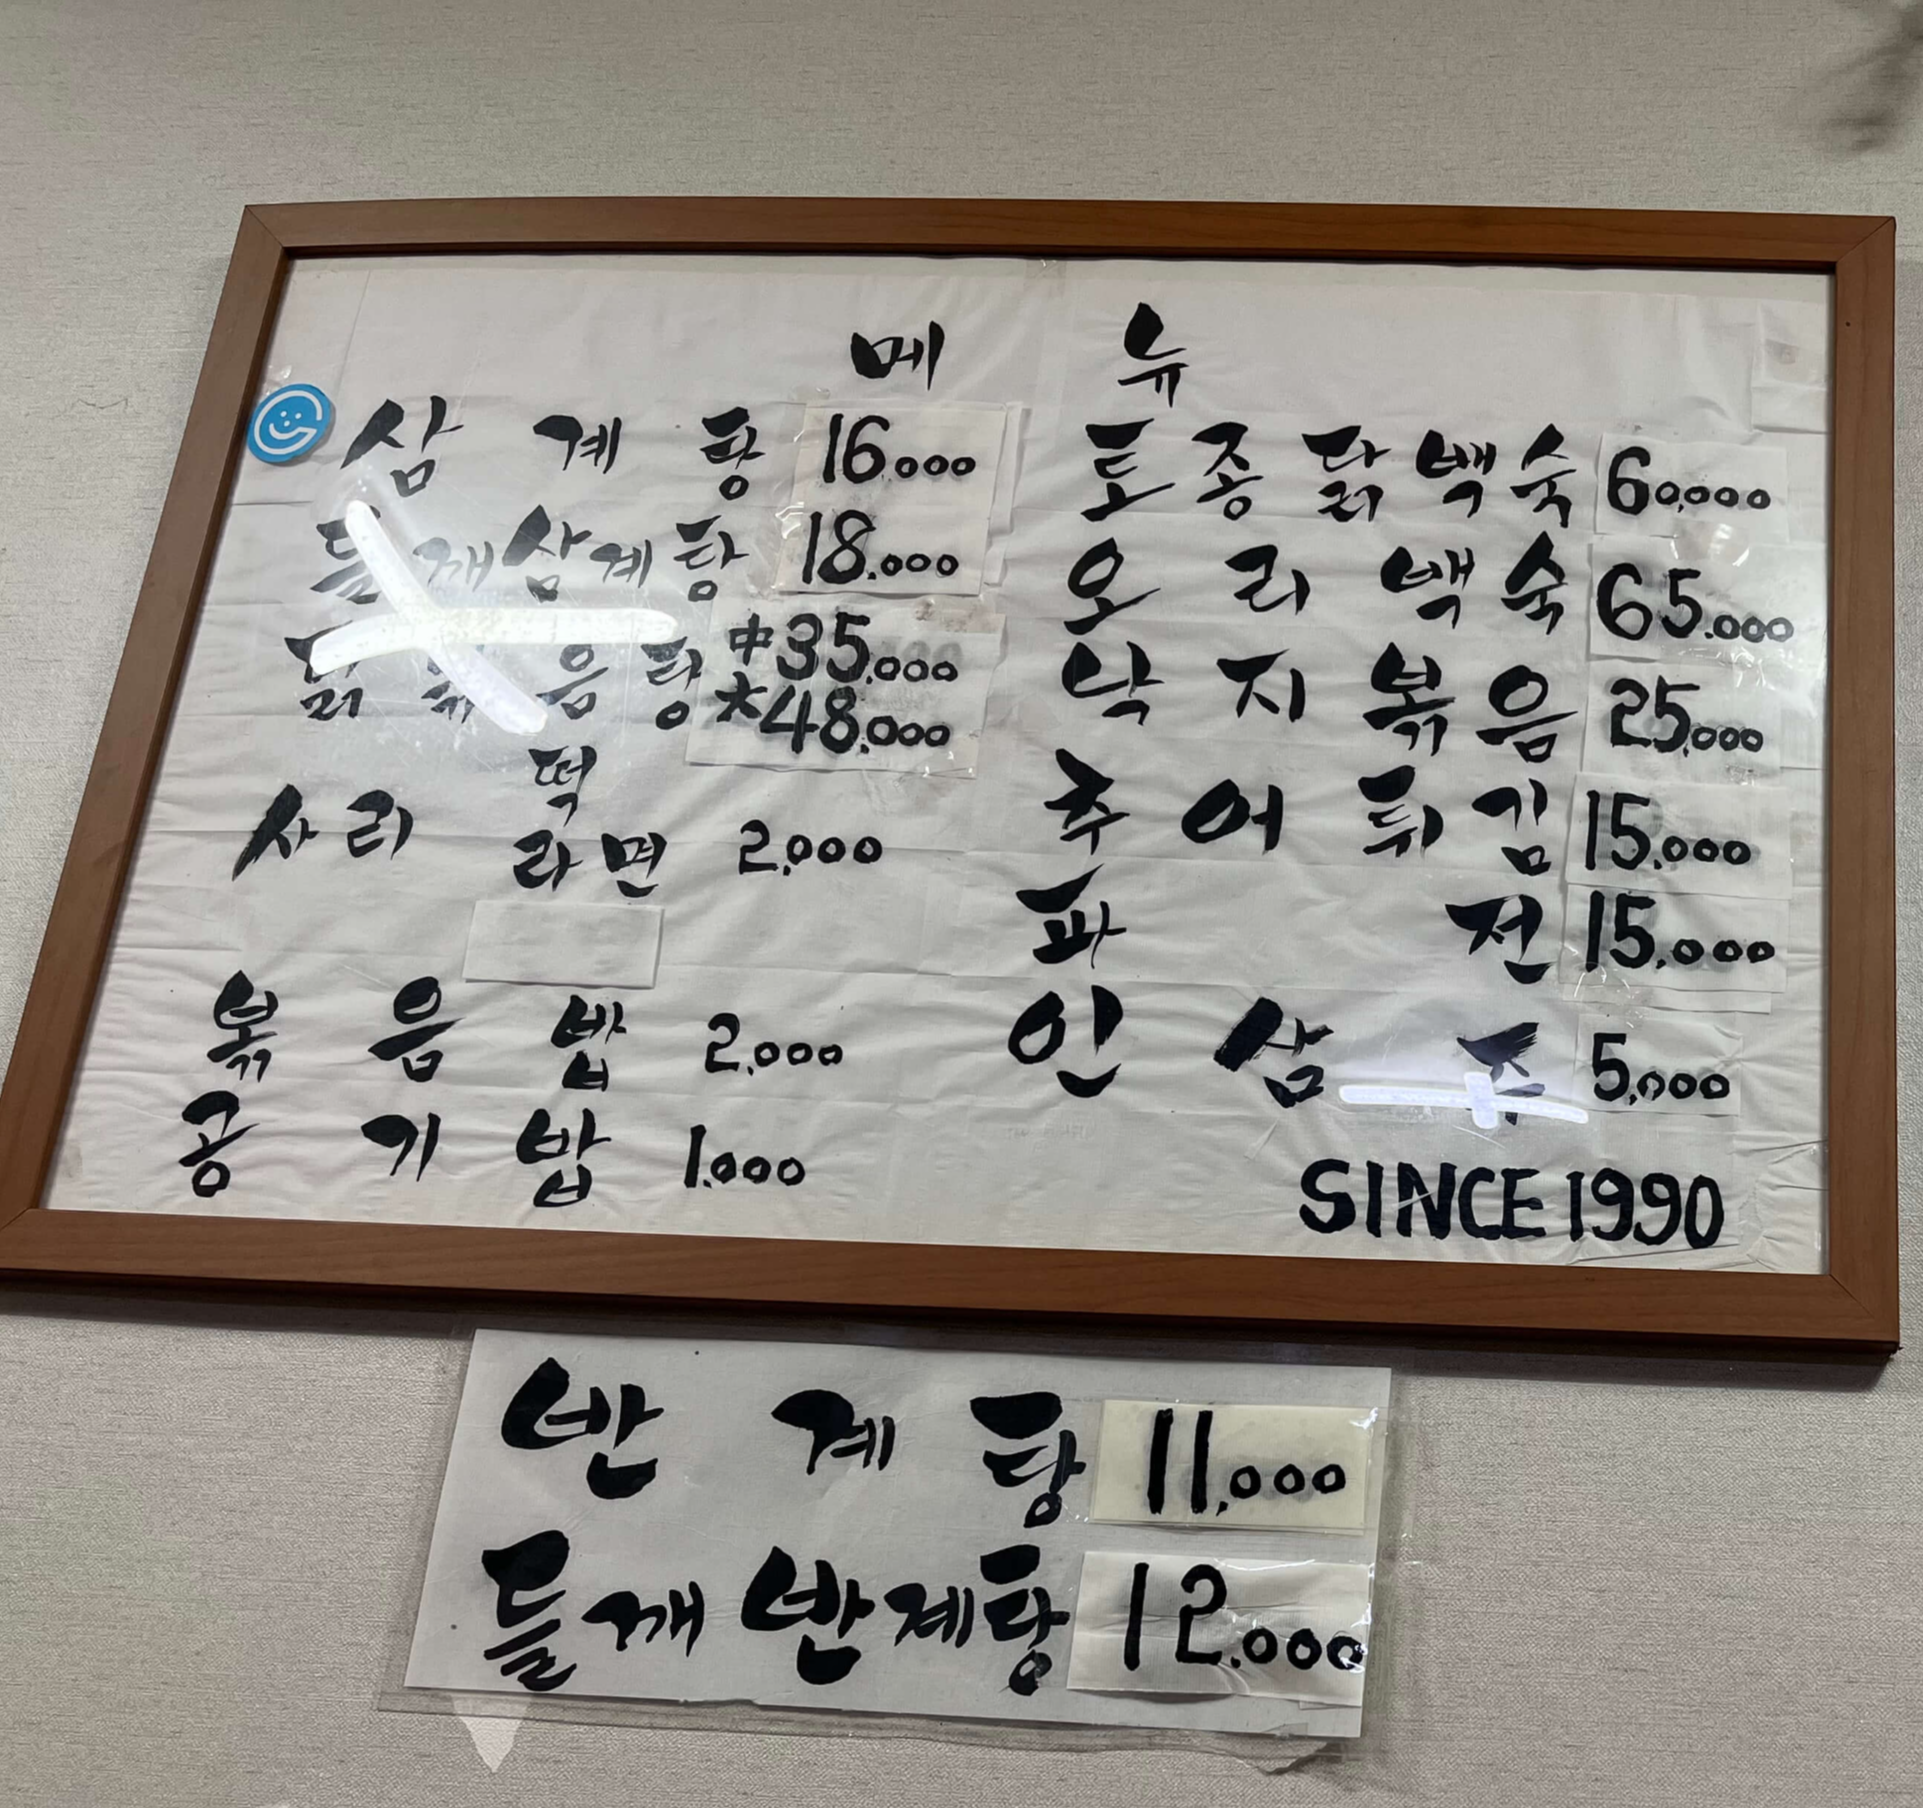 메 뉴
삼 계 탕 16,000
들깨삼계탕 18,000
닭 볶 음 탕 中 35,000
大 48,000
떡
사리 라면 2,000
볶 음 밥 2,000
공 기 밥 1,000
토 종 닭 백 숙 60,000
오 리 백 숙 65,000
낙 지 볶 음 25,000
추 어 튀 김 15,000
파 전 15,000
인 삼 주 5,000
SINCE 1990
반 계 탕 11,000
들깨 반계탕 12,000